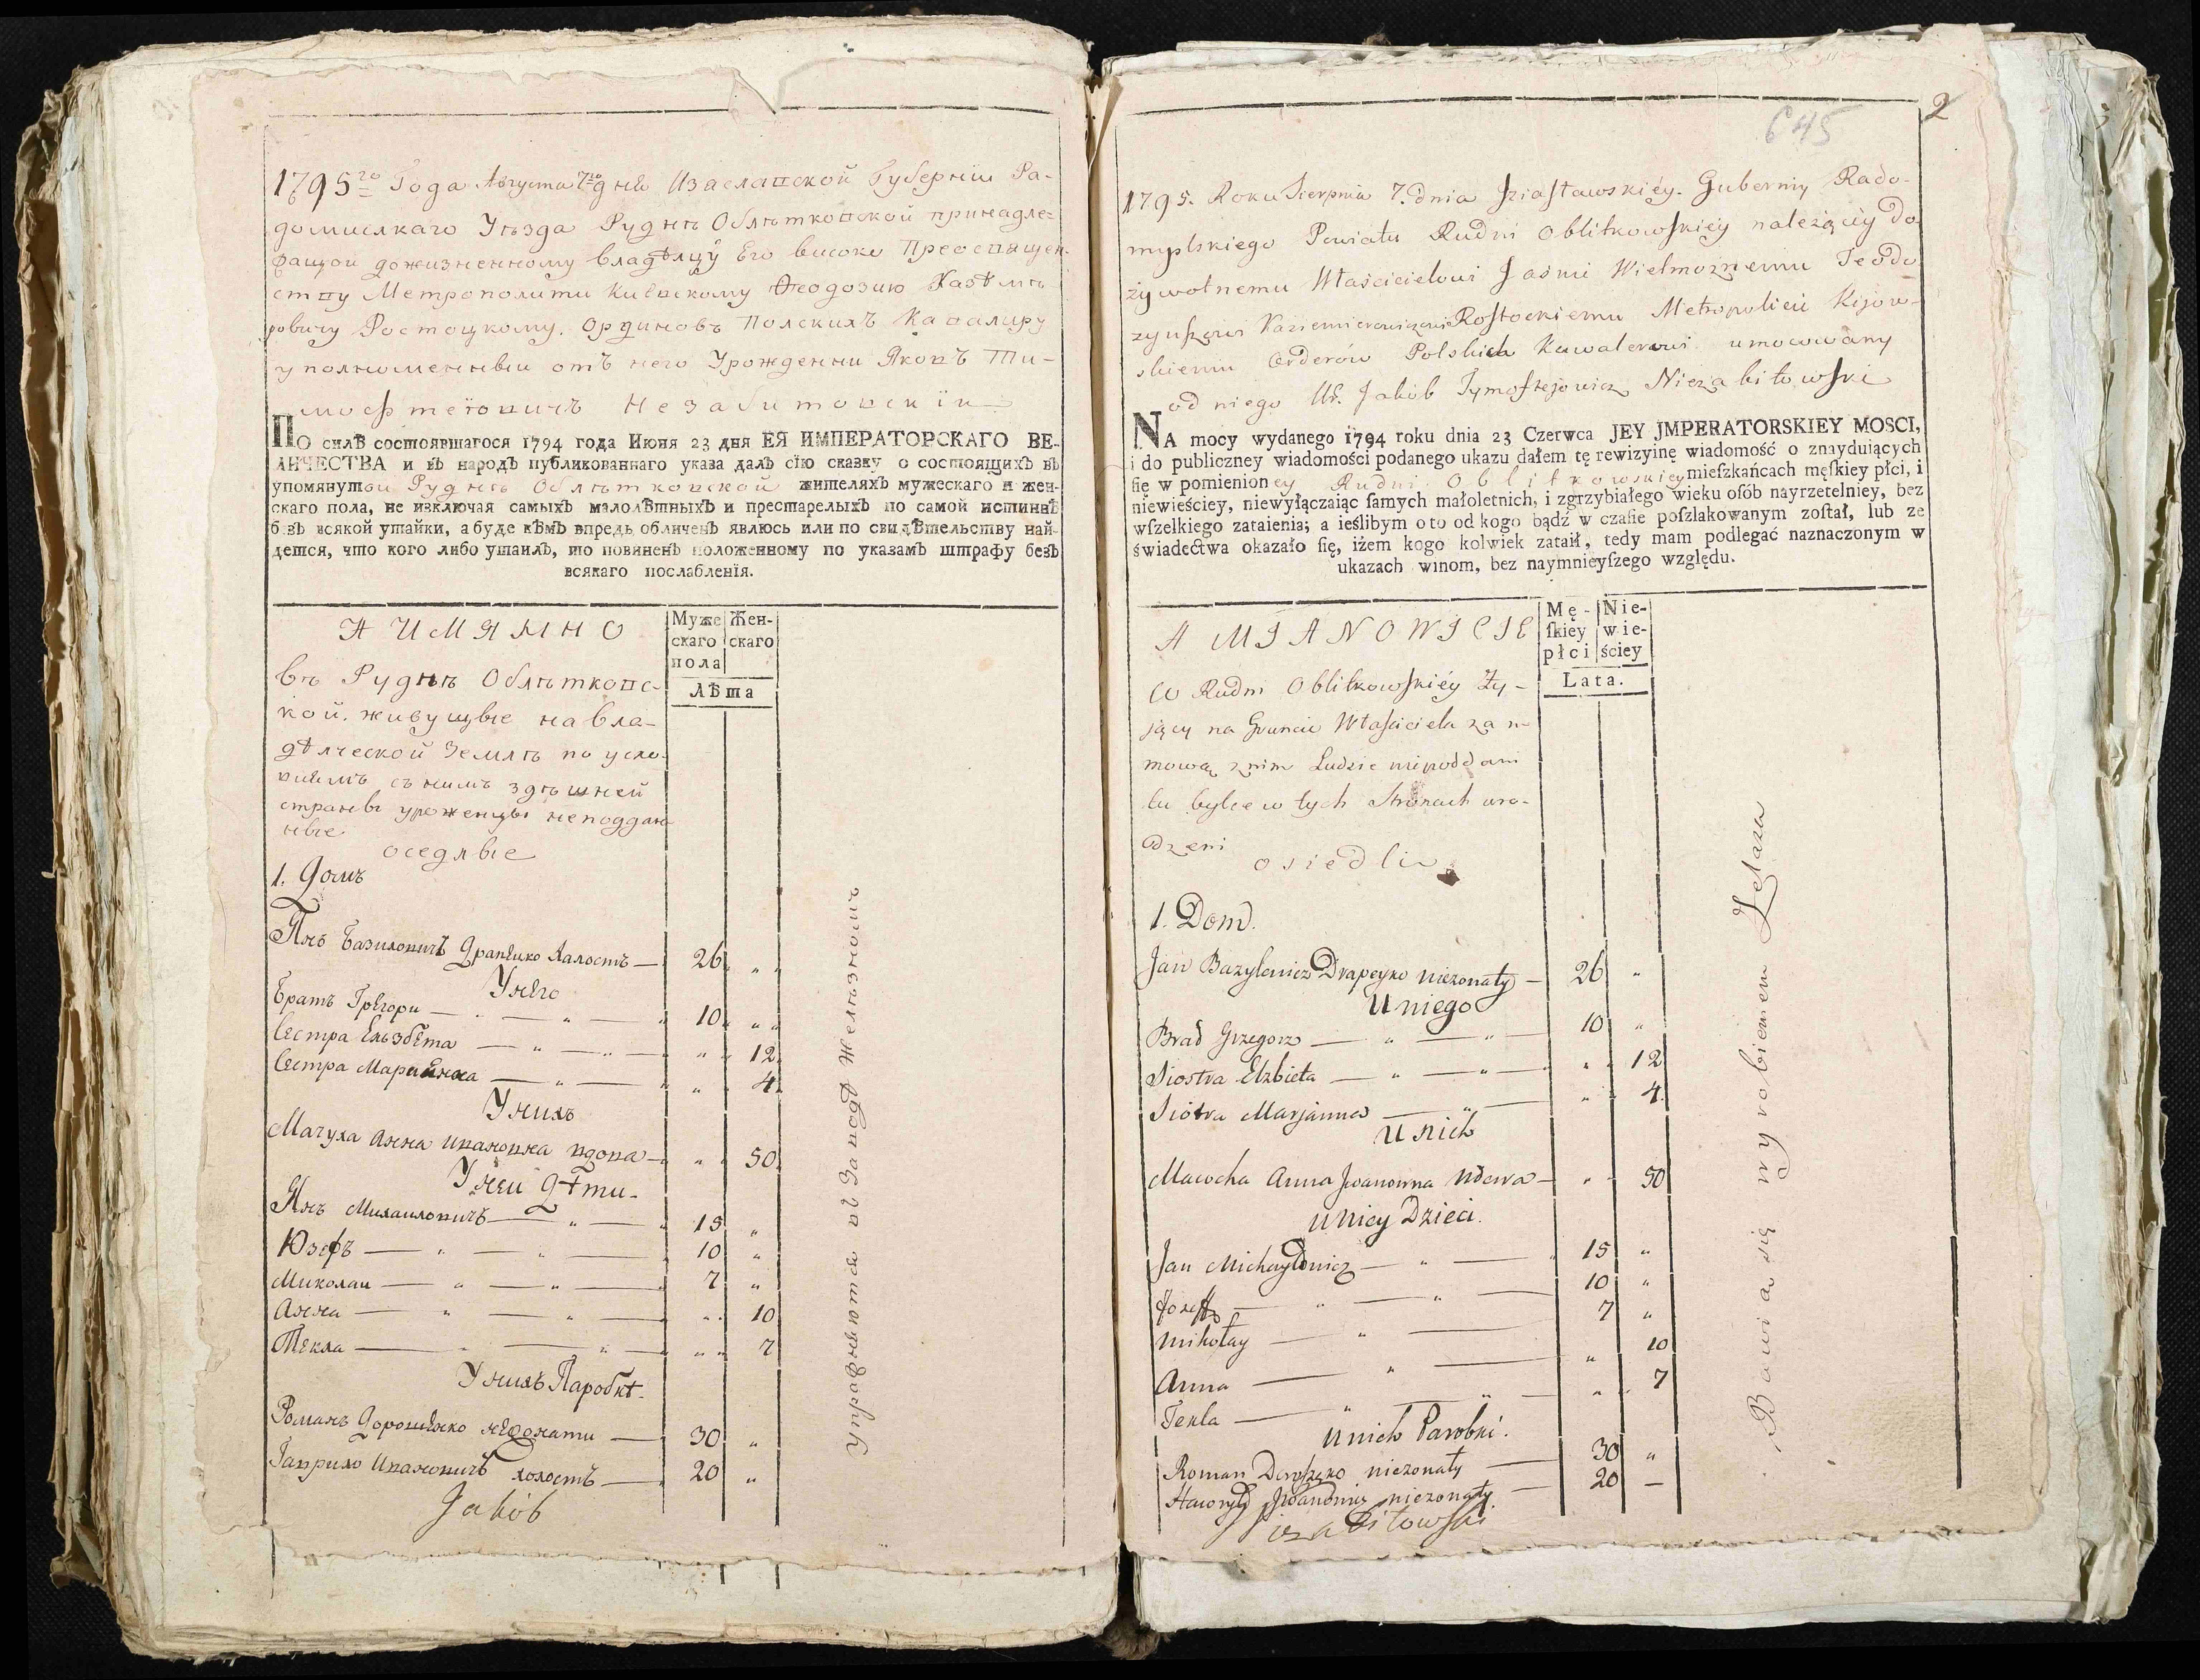 1795го Года Августа 7го дня Изаславской Губерніи Ра-
домислкаго Уѣзда Руднѣ Облѣтковской принадле=
жащои дожизненному владѣлцу Его високо Преосвящен-
ству Метрополити Киевскому Ѳеодозию Казѣмѣ
ровичу Ростоцкому. Ординовъ Полскихъ Кавалиру
уполномеиныи отъ него Урожденни Яковъ Ти-
мофтеїовичъ Незабитовскїи
ПО силѣ состоявшагося 1794 года Июня 23 дня ЕЯ ИМПЕРАТОРСКАГО ВЕ-
ЛИЧЕСТВА и въ народъ публикованнаго указа далъ сїю сказку о состоящихъ въ
упомянутои Руднѣ Облѣтковской жителяхъ мужескаго и жен-
скаго пола, не изключая самыхъ малолѣтныхъ и престарелыхъ по самой истиннѣ
безъ всякой утайки, а буде кѣмъ впредь обличенъ явлюсь или по свидѣтельству най-
дется, что кого либо утаилъ, то повиненъ положенному по указамъ штрафу безъ
всякаго послабленїя.
А ИМЯННО
Муже
скаго
пола
Жен-
скаго
Лѣта
въ Руднѣ Облѣтковс-
кой. живущые на вла-
дѣлческой Землѣ по усло-
виямъ съ нимъ здѣшней
страны уроженцы неподдан
ные
оседлые
1. Домъ
Янъ Базиловичъ Драпеико Халостъ — 26 „ „
У него
Братъ Грегори — „ — „ — 10 „ „
Сестра Ельзбета — „ — „ — „ „ 12
Сестра Марианна — „ — „ „ 4.
У нихъ
Мачуха Анна Ивановна вдова — „ „ 50
У неи Дѣти
Янъ Михаиловичъ — „ — 15 „
Юзефъ — „ — „ — 10 „
Миколаи — „ — „ — 7 „
Анна — „ — „ — „ 10
Текла — „ — „ — „ „ 7
У нихъ Паробкѣ.
Романъ Дорошенко нежонати — 30 „
Гаврило Ивановичъ холостъ — 20 „
Jakób
Упражняются ой Заводѣ Желѣзномъ
2
645
1795. Roku Sierpnia 7. dnia Iziaſławskiéy. Guberniy Rado-
myslskiego Powiatu Rudni Oblitkowſkiéy należącéy do
żywotnemu Właścicielowi Jaśnie Wielmożnemu Teodo
zyuszowi Kaziemierowiczowi Roſtockiemu Metropolicie Kijow-
skiemu Orderów Polskich Kawalerowi umocowany
od niego Ur. Jakób Tymofiejowicz Niezabitowſki
NA mocy wydanego 1794 roku dnia 23 Czerwca JEY JMPERATORSKIEY MOSCI,
i do publiczney wiadomości podanego ukazu dałem tę rewizyinę wiadomość o znayduiących
ſię w pomienioney Rudni Oblitkowskiey mieſzkańcach męſkiey płci, i
niewieściey, niewyłączaiąc ſamych małoletnich, i zgrzybiałego wieku oſób nayrzetelniey, bez
wſzelkiego zataienia; a ieślibym o to od kogo bądź w czaſie poſzlakowanym zoſtał, lub ze
świadectwa okazało ſię, iżem kogo kolwiek zataił, tedy mam podlegać naznaczonym w
ukazach winom, bez naymnieyſzego względu.
A MIANOWICIE
Mę-
ſkiey
płci
Nie-
wie-
ściey
Lata.
W Rudni Oblitkowſkiéy ży-
jący na Gruncie Właſciciela za u-
mową z nim Ludzie niepoddani
tu bylce w tych Stronach uro-
dzeni
osiedli
1. Dom.
Jan Bazylewicz Drapeyko nieżonaty — 26 „
U niego
Brad Grzegorz — „ — „ — 10 „
Siostra Elzbieta — „ — „ — „ 12
Siostra Marjanna — „ — „ 4.
U nich
Macocha Anna Jwanowna Wdowa — „ 50
U Niey Dzieci.
Jan Michayłowicz — „ — 15 „
Jozeff — „ — „ — 10 „
Mikołay — „ — 7 „
Anna — „ — „ 10
Tekla — „ — „ — „ 7
U nich Parobki.
Roman Doroszęko nieżonaty — 30 „
Hawryło Jwanowicz nieżonaty. — 20 —
Niezabitowſki
Bawią się wyrobieniem Żelaza